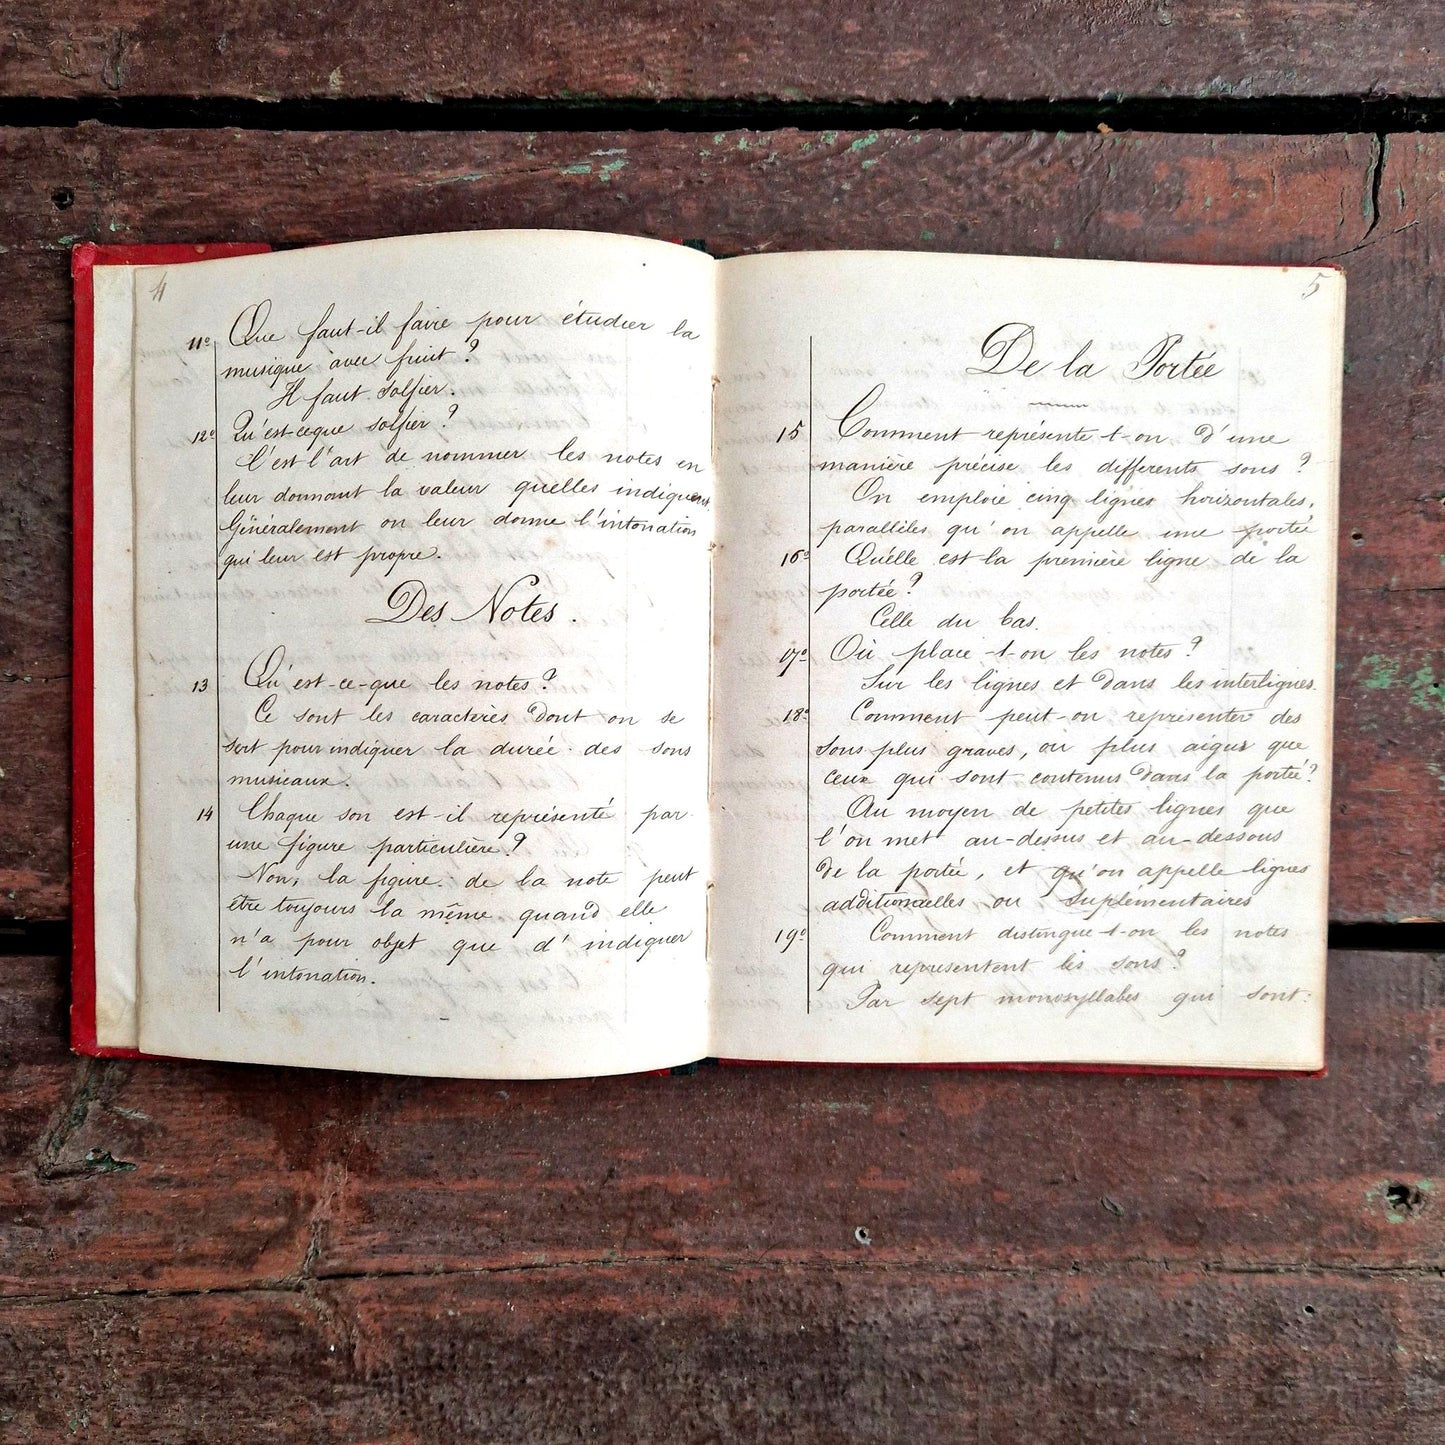 4
11º Que faut-il faire pour étudier la
musique avec fruit ?
Il faut solfier.
12º Qu'est-ceque solfier ?
C'est l'art de nommer les notes en
leur donnant la valeur quelles indiquent.
Généralement on leur donne l'intonation
qui leur est propre.
Des Notes.
13 Qu'est-ce-que les notes ?
Ce sont les caractères dont on se
sert pour indiquer la durée des sons
musicaux.
14 Chaque son est-il représenté par
une figure particulière ?
Non, la figure de la note peut
être toujours la même quand elle
n'a pour objet que d'indiquer
l'intonation.
5
De la Portée
15 Comment représente-t-on d'une
manière précise les differents sons ?
On emploie cinq lignes horizontales,
parallèles qu'on appelle une portée
16º Quélle est la première ligne de la
portée ?
Celle du bas.
17º Où place-t-on les notes ?
Sur les lignes et dans les interlignes.
18º Comment peut-on représenter des
sons plus graves, ou plus aigus que
ceux qui sont contenus dans la portée ?
Au moyen de petites lignes que
l'on met au-dessus et au-dessous
de la portée, et qu'on appelle lignes
additionnelles ou suplémentaires
19º Comment distingue-t-on les notes
qui representent les sons ?
Par sept monosyllabes qui sont: